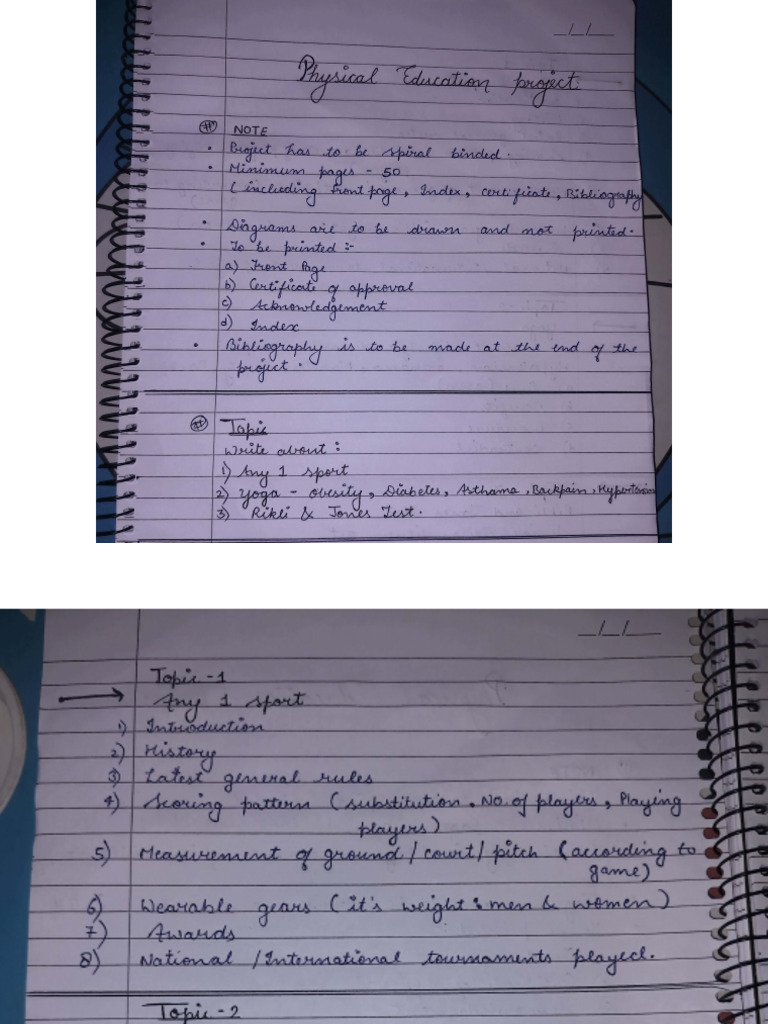 _/_/_
Physical Education project
# NOTE
• Project has to be spiral binded.
• Minimum pages - 50
(including front page, Index, certificate, Bibliography
• Diagrams are to be drawn and not printed.
• To be printed :-
a) Front Page
b) Certificate of approval
c) Acknowledgement
d) Index
• Bibliography is to be made at the end of the
project.
# Topic
Write about :
1) Any 1 sport
2) Yoga - obesity, Diabetes, Asthama, Backpain, Hypertension
3) Rikli & Jones Test.
_/_/_
Topic -1
→ Any 1 sport
1) Introduction
2) History
3) Latest general rules
4) Scoring pattern (substitution, No. of players, Playing
players)
5) Measurement of ground / court / pitch (according to
game)
6) Wearable gears (it's weight : men & women)
7) Awards
8) National / International tournaments played.
Topic -2